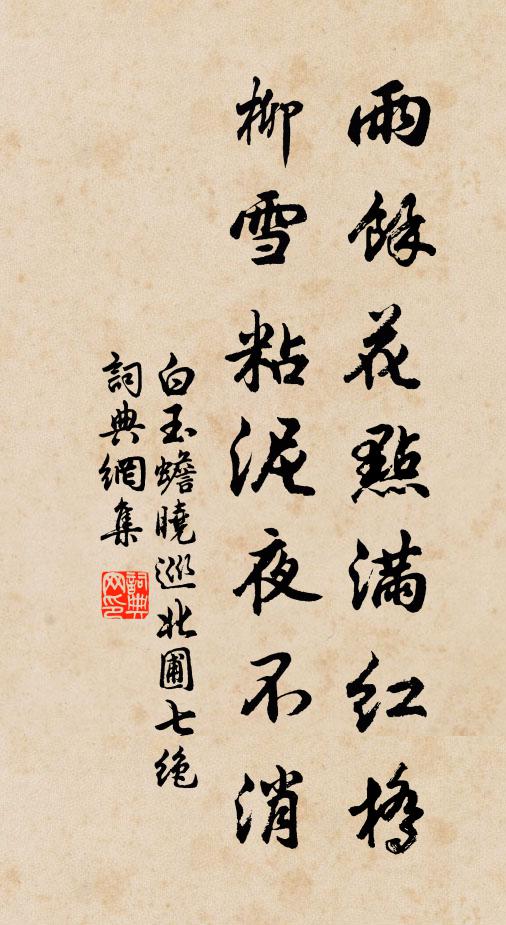 雨餘花點滿紅橋
柳雪粘泥夜不消
白玉蟾曉巡北圃七絶
詞典網集
詞典網印